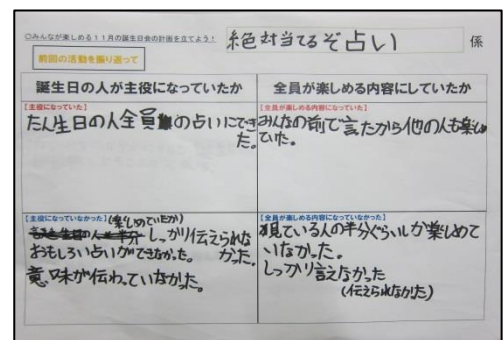 ○みんなが楽しめる11月の誕生日会の計画を立てよう!
絶対当てるぞ占い 係
前回の活動を振り返って
誕生日の人が主役になっていたか
全員が楽しめる内容にしていたか
【主役になっていた】
たん生日の人全員の占いにでき
た。
【全員が楽しめる内容になっていた】
みんなの前で言たから他の人も楽しめ
ていた。
【主役になっていなかった】(楽しめていたか)
しっかり伝えられな
かった。
おもしろい占いができなかった。
意味が伝わっていなかった。
【全員が楽しめる内容になっていなかった】
見ている人の半分ぐらいしか楽しめて
いなかった。
しっかり言えなかった
(伝えられなかた)